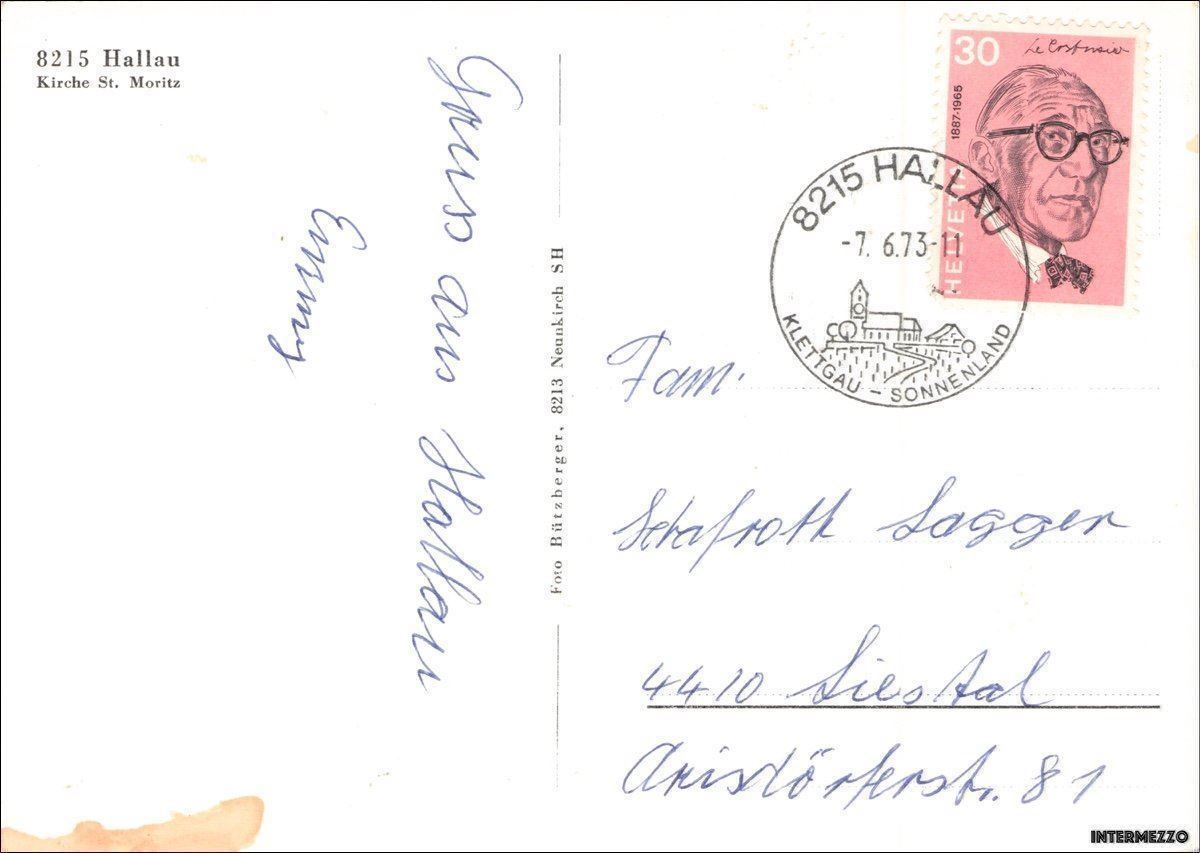 8215 Hallau
Kirche St. Moritz
Gruss aus Hallau
Emmy
Foto Bützberger, 8213 Neunkirch SH
30
Le Corbusier
1887-1965
HELVETIA
8215 HALLAU
-7. 6.73-11
KLETTGAU – SONNENLAND
Fam.
Schafroth Sagger
4410 Liestal
Arisdörferstr. 81
INTERMEZZO